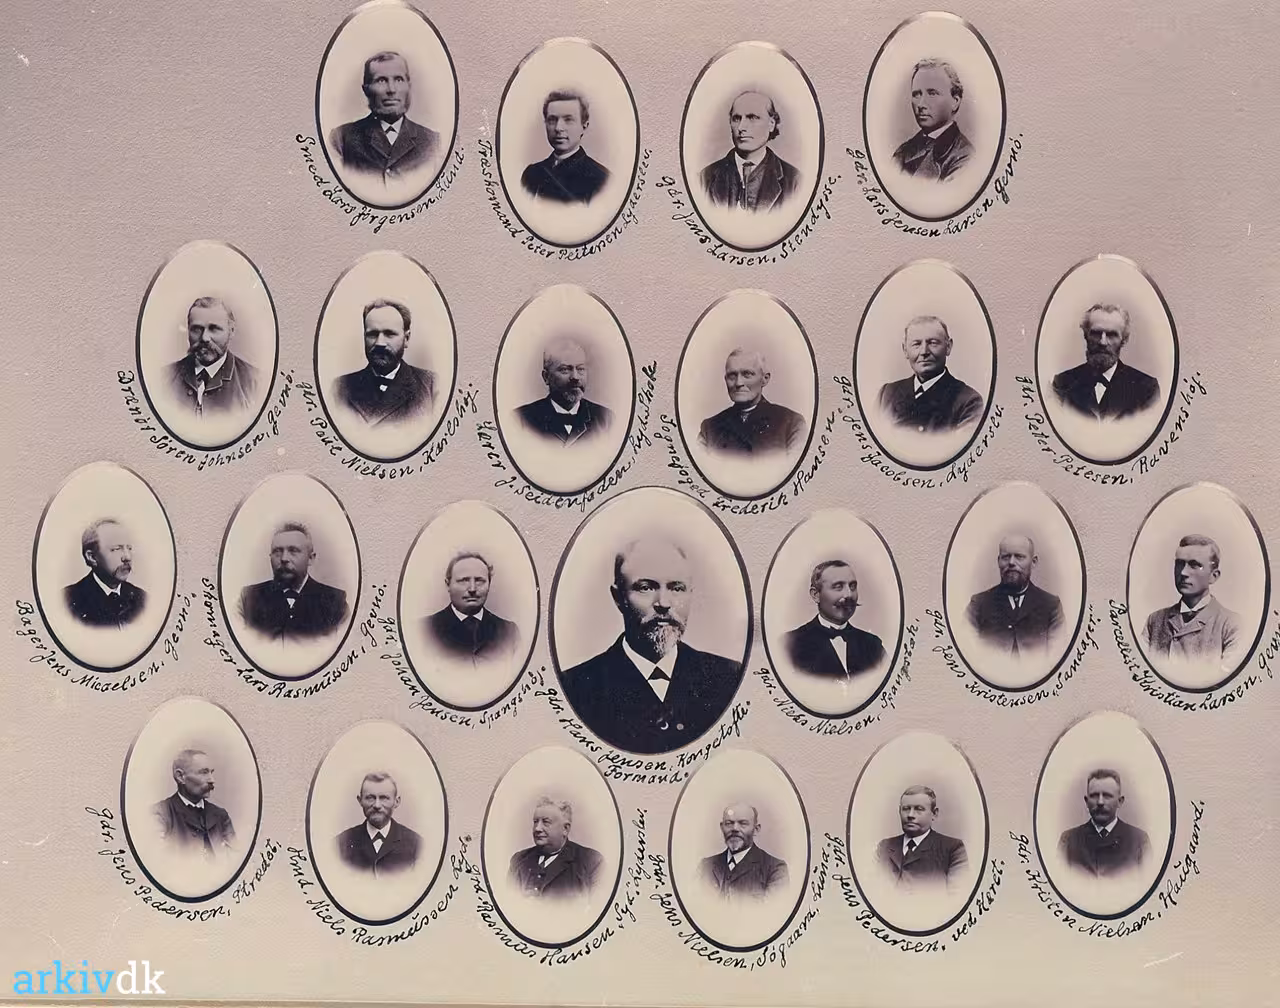 Smed Lars Jørgensen, Lund.
Træskomand Peter Peitersen Lyderslev.
Gdr. Jens Larsen, Stendysse.
Gdr. Lars Jensen Larsen, Gevnö.
Sören Johnsen, Gevnö.
gdr. Poúl Nielsen, Karlshöj.
Lærer J. Seidenfaden, Lydlskole
Sognefoged Frederik Hansen.
gdr. Jens Jacobsen, Lyderslev.
gdr. Peter Petesen, Ravenshöj.
Bager Jens Micaelsen, Gevnö.
Skomager Lars Rasmússen, Gevnö.
gdr. Johan Jensen, Spangshg.
gdr. Hans Jensen, Kongetofte.
Formand.
gdr. Niels Nielsen, Spangsbk.
gdr. Jens Kristensen, "Sandager."
Parcellist Kristian Larsen, Gevnö.
Gdr. Jens Pedersen, Strædet.
Hmd. Niels Rasmússen Lyds.
Rasmús Hansen, Syd. Lyderslev.
gdr. Jens Nielsen, Sögaard, Lúnd.
gdr. Jens Pedersen, ved Hæret.
gdr. Kristen Nielsen, Haúgaard.
arkivdk